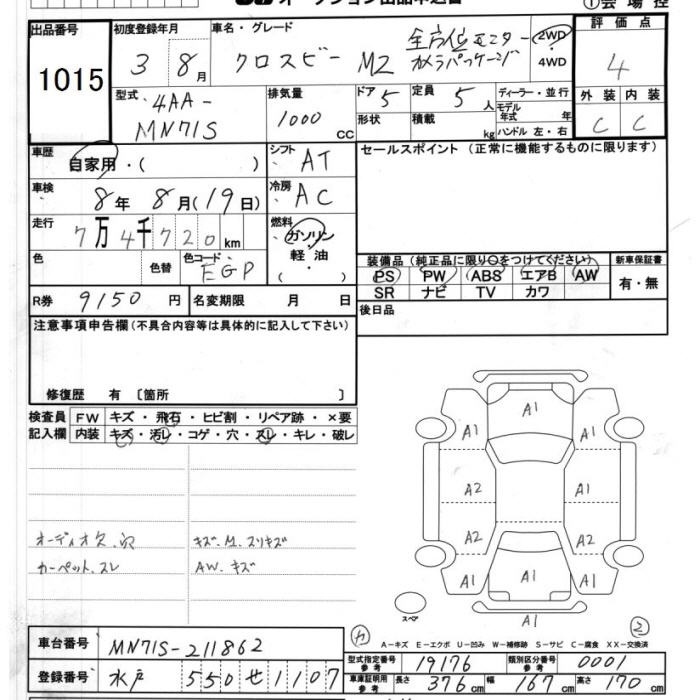 出品番号
1015
初度登録年月
3 8月
車名・グレード
クロスビー M2 全方位モニターカメラパッケージ
2WD
4WD
評価点
4
外装 内装
C C
型式
4AA-
MN71S
排気量
1000 CC
ドア 5
形状
定員 5人
積載 kg
ディーラー・並行
モデル年式 年
ハンドル 左・右
車歴
自家用・( )
シフト AT
車検
8年 8月(19日)
冷房 AC
走行
7万4千720km
燃料
ガソリン
軽油
( ・ )
色
色替
色コード EGP
R券 9150円
名変期限 月 日
セールスポイント (正常に機能するものに限ります)
装備品(純正品に限り○をつけてください)
PS PW ABS エアB AW
SR ナビ TV カワ
新車保証書
有・無
後日品
注意事項申告欄(不具合内容等は具体的に記入して下さい)
修復歴 有 [箇所 ]
検査員記入欄
FW キズ・飛石・ヒビ割・リペア跡・×要
内装 キズ・汚レ・コゲ・穴・スレ・キレ・破レ
オーディオ欠.穴
カーペット.スレ
キズ.M.スリキズ
AW.キズ
A1
A1 A1
A2 A1
A2 A1
A1 A1 A1
A1
スペア
A-キズ E-エクボ U-凹み W-補修跡 S-サビ C-腐食 XX-交換済
車台番号 MN71S-211862
登録番号 水戸 550 せ 1107
型式指定番号 参考 19176
類別区分番号 参考 0001
車庫証明用 参考 長さ 376cm 幅 167cm 高さ 170cm